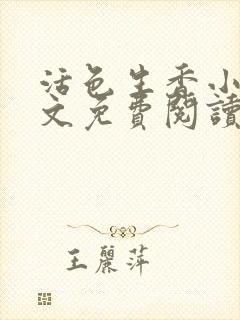 活色生香小
文免費閱讀
王麗萍